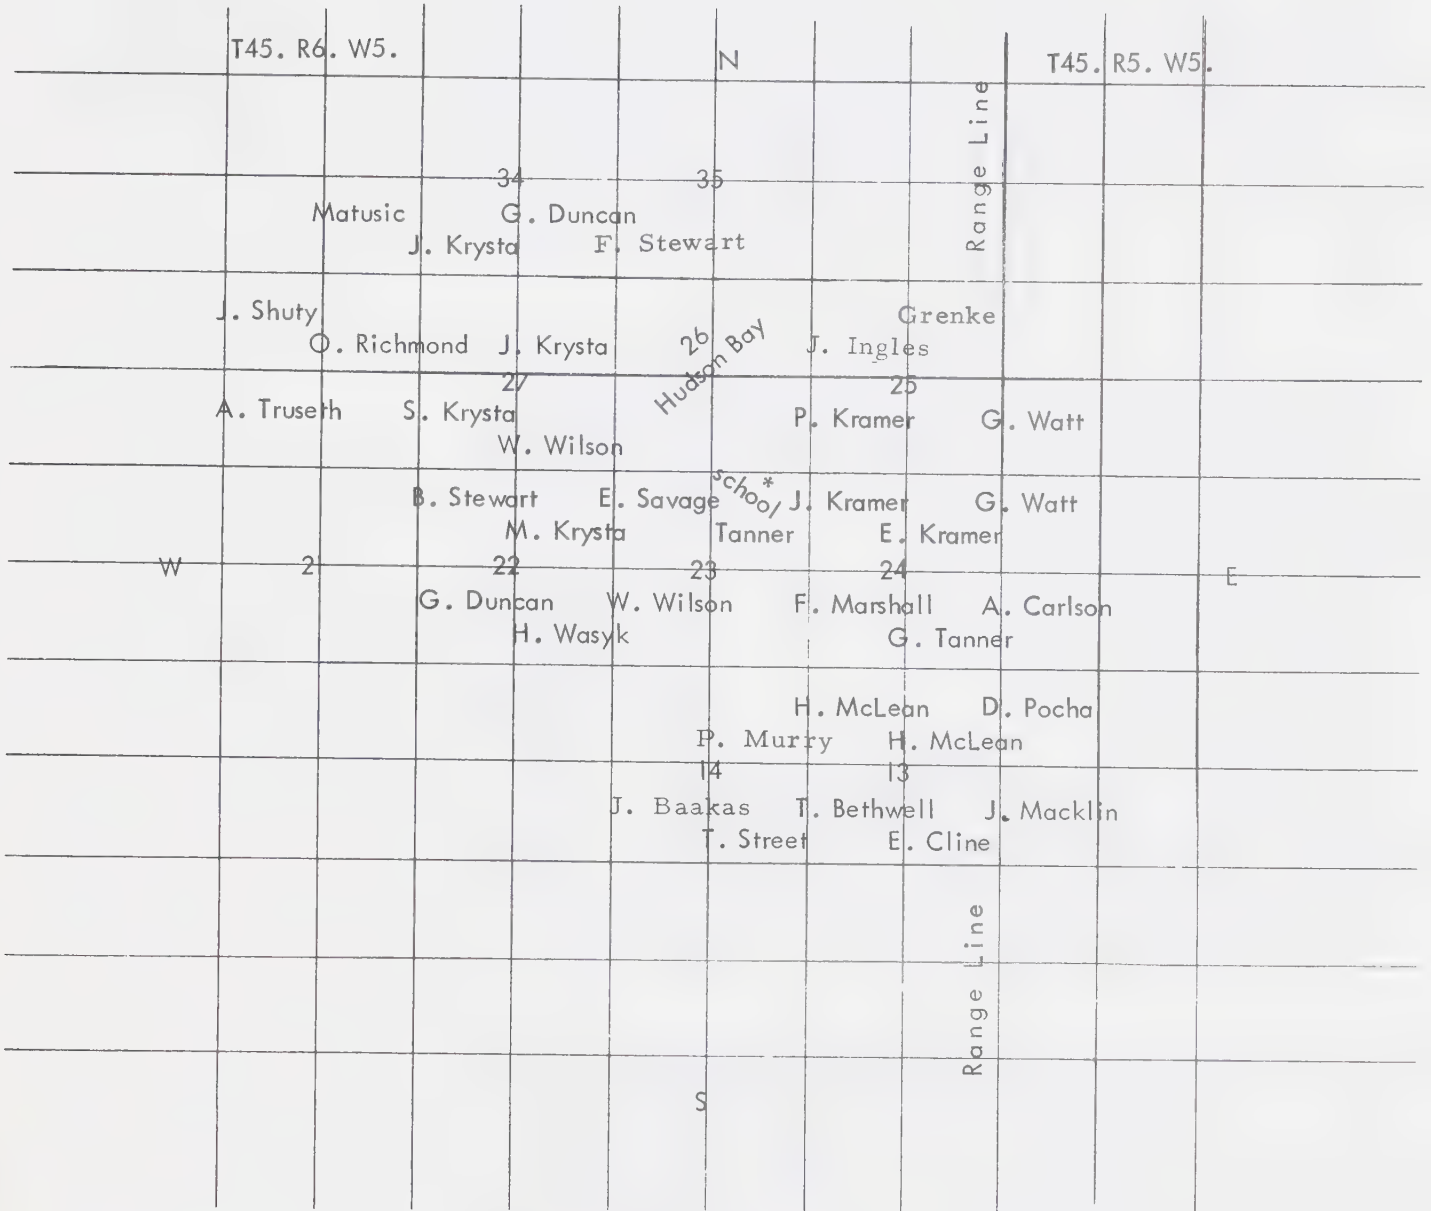 T45. R6. W5.
N
T45. R5. W5.
Range Line
34 35
Matusic G. Duncan
J. Krysta F. Stewart
J. Shuty Grenke
O. Richmond J. Krysta 26 J. Ingles
Hudson Bay
27 25
A. Truseth S. Krysta P. Kramer G. Watt
W. Wilson
school *
B. Stewart E. Savage J. Kramer G. Watt
M. Krysta Tanner E. Kramer
W 21 22 23 24 E
G. Duncan W. Wilson F. Marshall A. Carlson
H. Wasyk G. Tanner
H. McLean D. Pocha
P. Murry H. McLean
14 13
J. Baakas T. Bethwell J. Macklin
T. Street E. Cline
Range Line
S